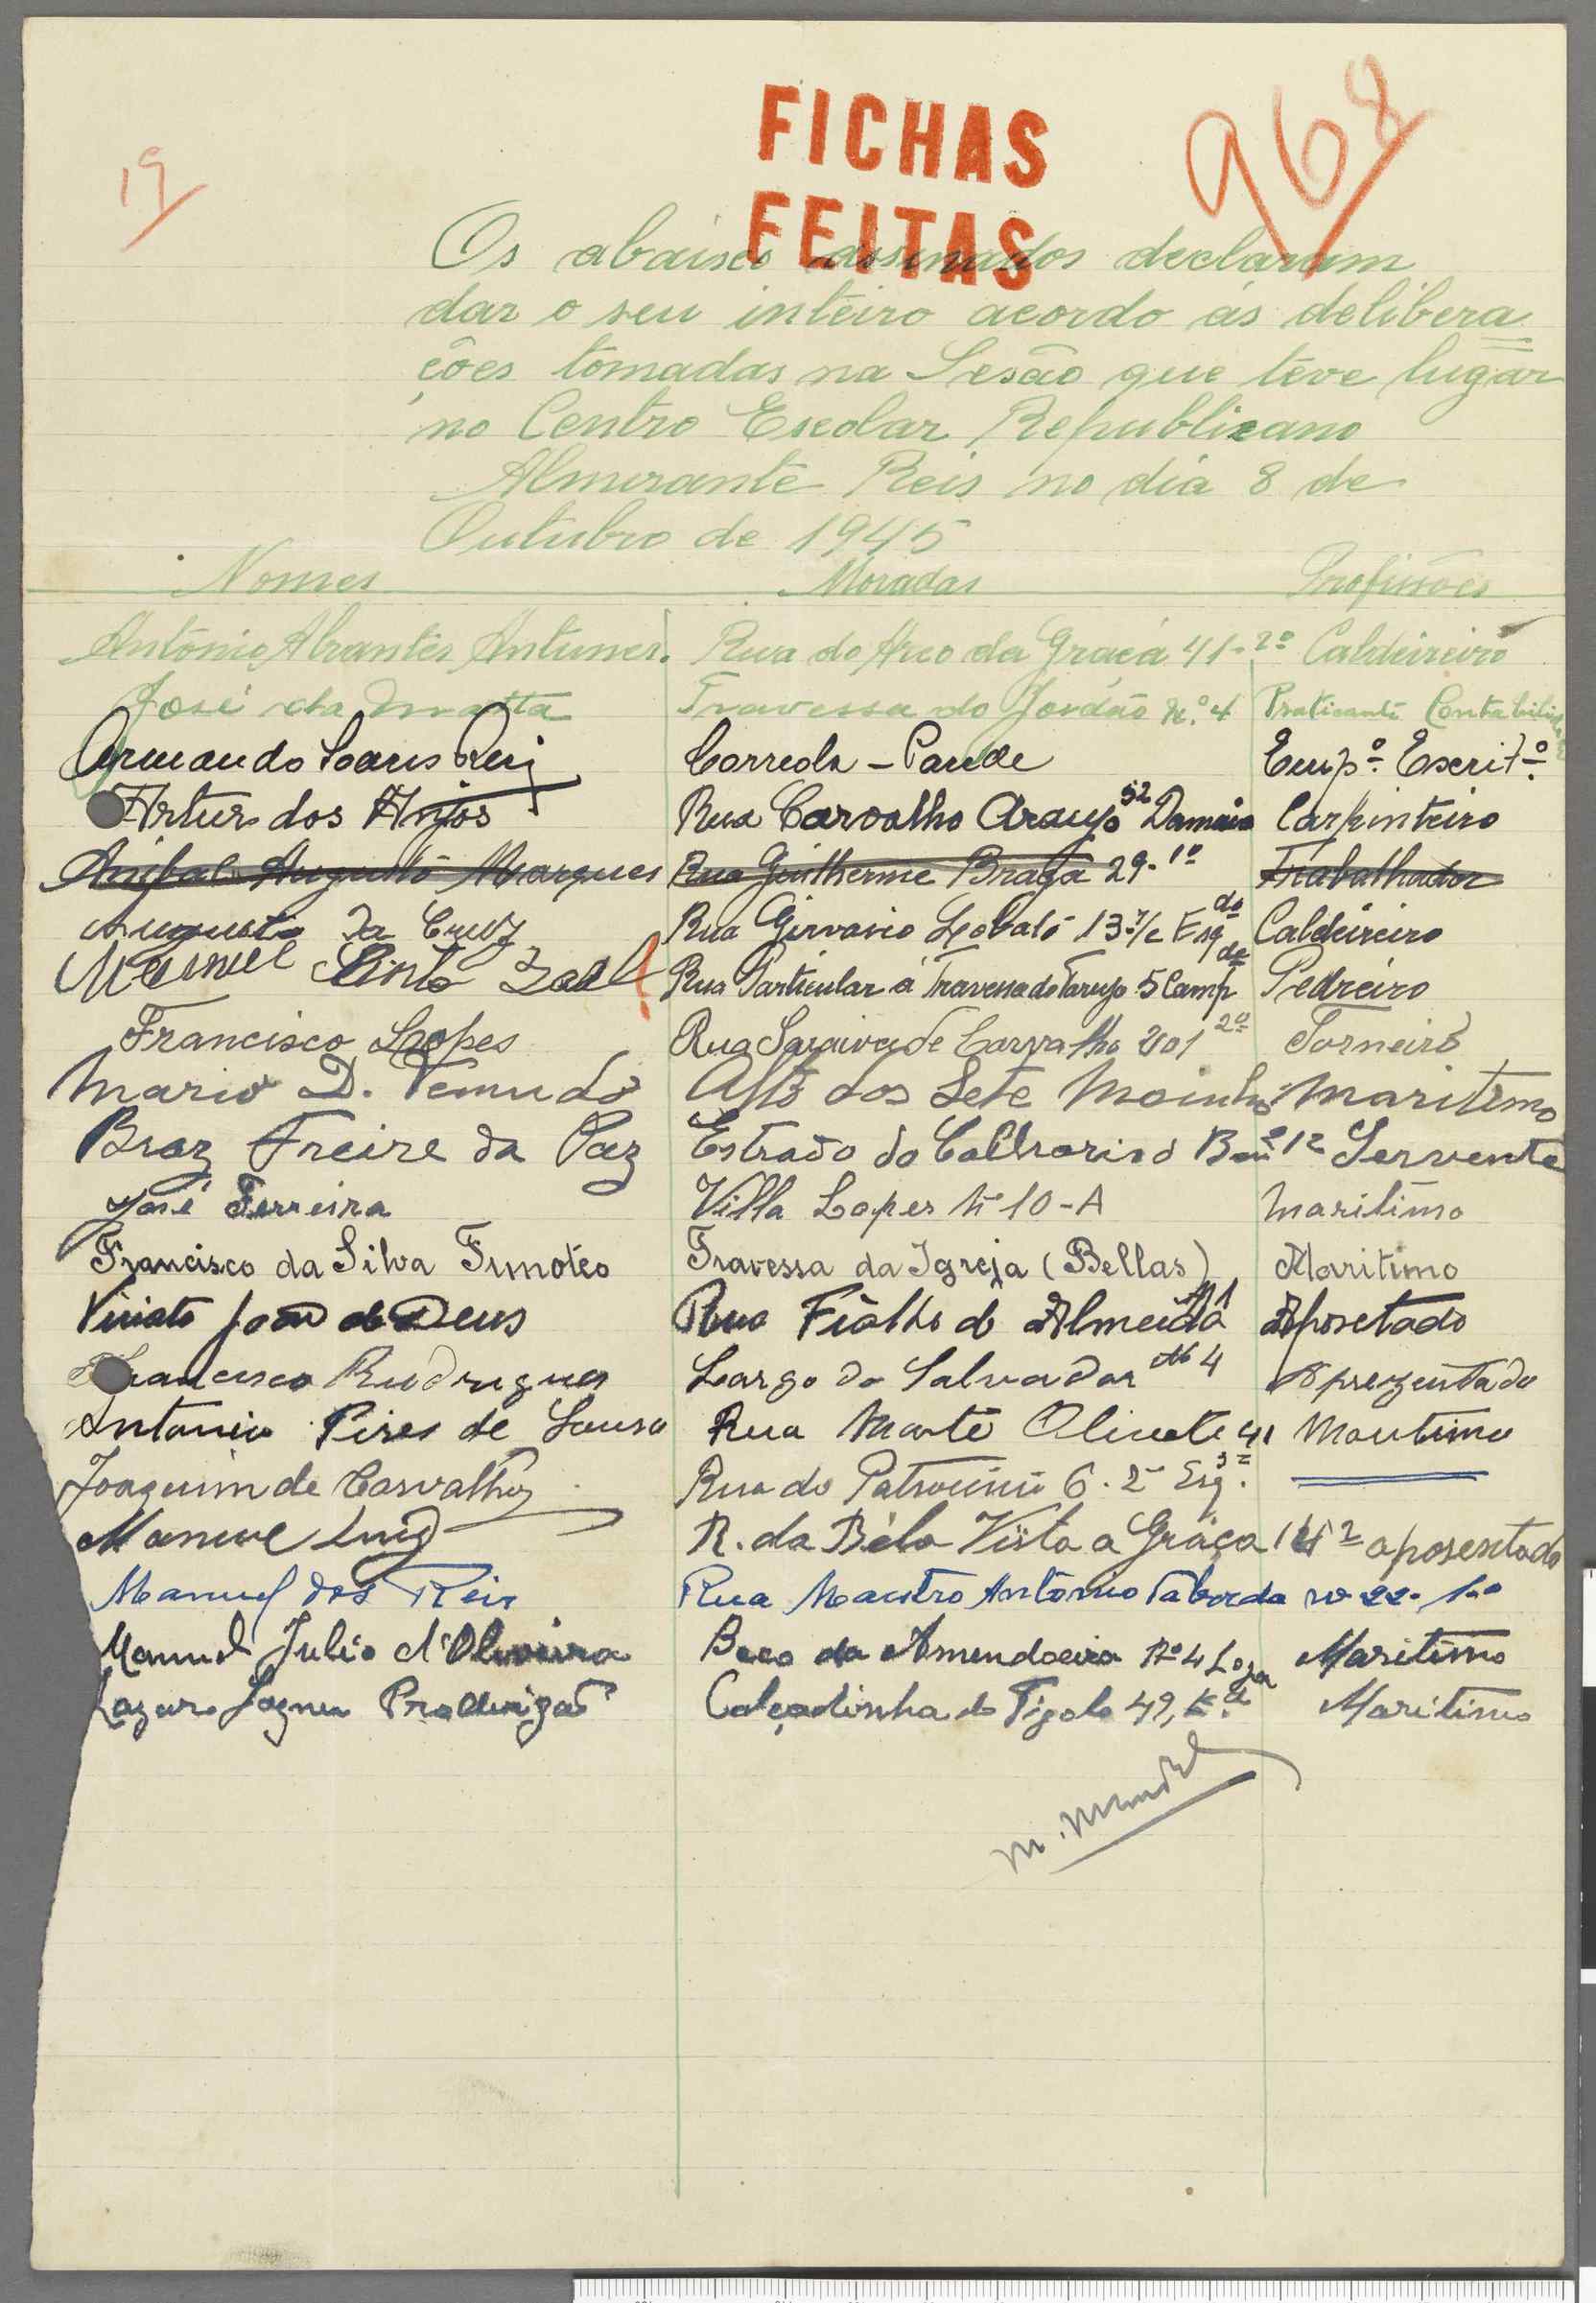 FICHAS
FEITAS
968
19
Os abaisco assinados declaram
dar o seu inteiro acordo ás delibera=
ções tomadas na Sesão que teve lugar
no Centro Escolar Republicano
Almirante Reis no dia 8 de
Outubro de 1945
Nomes Moradas Profissões
António Abrantes Antunes. Rua do Arco da Graça 41-2º Caldeireiro
José da Matta Travessa do Jordão N.º 4 Praticante
Armando Soares Reis Empº. Escritº.
Artur dos Anjos Rua Carvalho Araujo 52 Damaia Carpinteiro
Anibal Augusto Marques Rua Guilherme Braga 29-1º Trabalhador
Augusto da Cruz Rua Girvasio Lobato 13 r/c Esq Caldeireiro
Manuel Pinto Rua Particular á Travessa do Tarujo 5 Camp de Pedreiro
Francisco Lopes Rua Saraiva de Carvalho 201 2º Torneiro
Mario D. Temudo Alto dos Sete Moinhos Maritimo
Braz Freire da Paz Estrada do 12 Servente
José Ferreira Villa Lopes Nº 10-A Maritimo
Francisco da Silva Timoteo Travessa da Igreja (Bellas) Maritimo
Viriato João de Deus Rua Fialho de Almeida Aposetado
Francisco Rudrigues Largo do Salvador Nº 4
Antonio Pires de Sousa Rua Monte Olivete 41 Maritimo
Joaquim de Carvalho Rua do Patrocinio 6. 2º Esq.
Manuel Luiz R. da Béla Vista a Graça aposentado
Manuel dos Reis Rua Maestro António Taborda nº 22-1º
Manuel Julio d'Oliveira Beco da Amendoeira Nº 4 Loja Maritimo
Calçadinha do Tigolo 49, Maritimo